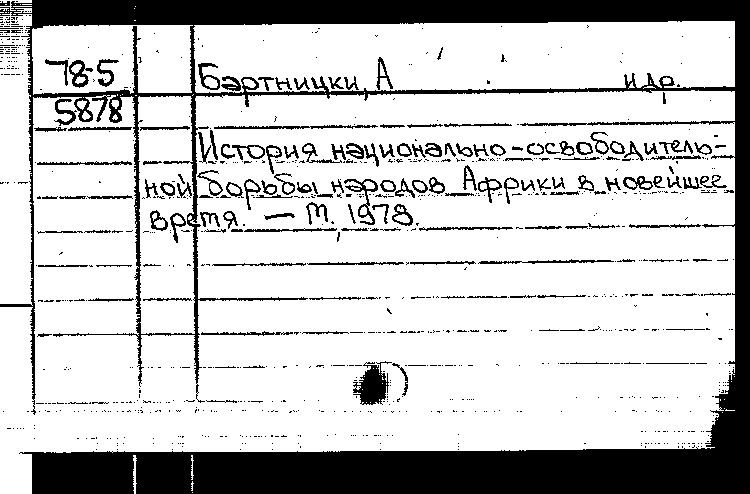 78-5 Бартницки, А и др.
5878
История национально-освободитель-
ной борьбы народов Африки в новейшее
время. — М. 1978.